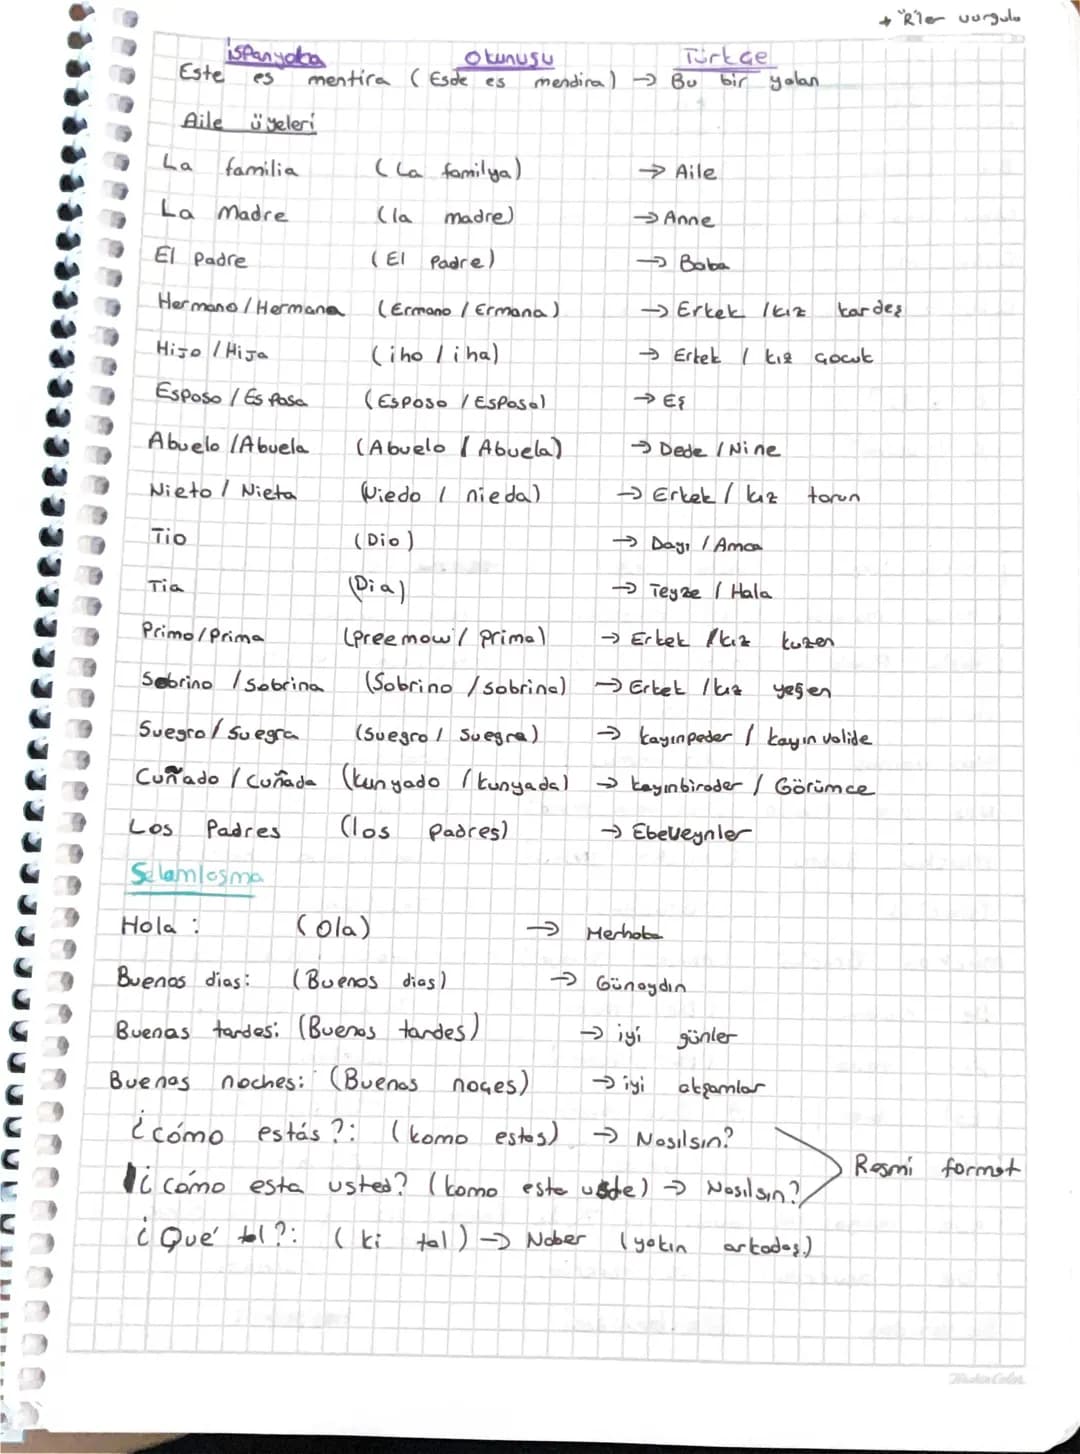 → "R"ler vurgulu
İspanyolca Okunuşu Türkçe
Este es mentira (Esde es mendira) → Bu bir yalan
Aile üyeleri
La familia (La familya) → Aile
La Madre (la madre) → Anne
El Padre (El Padre) → Baba
Hermano / Hermana (Ermano / Ermana) → Erkek / kız kardeş
Hijo / Hija (iho / iha) → Erkek / kız çocuk
Esposo / Esposa (Esposo / Esposa) → Eş
Abuelo / Abuela (Abuelo / Abuela) → Dede / Nine
Nieto / Nieta (Niedo / nieda) → Erkek / kız torun
Tio (Dio) → Dayı / Amca
Tia (Dia) → Teyze / Hala
Primo / Prima (preemow / prima) → Erkek / kız kuzen
Sobrino / Sobrina (Sobrino / sobrina) → Erkek / kız yeğen
Suegro / Suegra (Suegro / Suegra) → kayınpeder / kayın valide
Cuñado / Cuñada (kunyado / kunyada) → kayınbirader / Görümce
Los Padres (los padres) → Ebeveynler
Selamlaşma
Hola : (Ola) → Merhaba
Buenos dias: (Buenos dias) → Günaydın
Buenas tardes: (Buenas tardes) → iyi günler
Buenas noches: (Buenas noçes) → iyi akşamlar
¿cómo estás?: (komo estas) → Nasılsın?
¿cómo esta usted? (komo esta uste) → Nasılsın? Resmi format
¿Qué tal?: (ki tal) → Naber (yakın arkadaş)